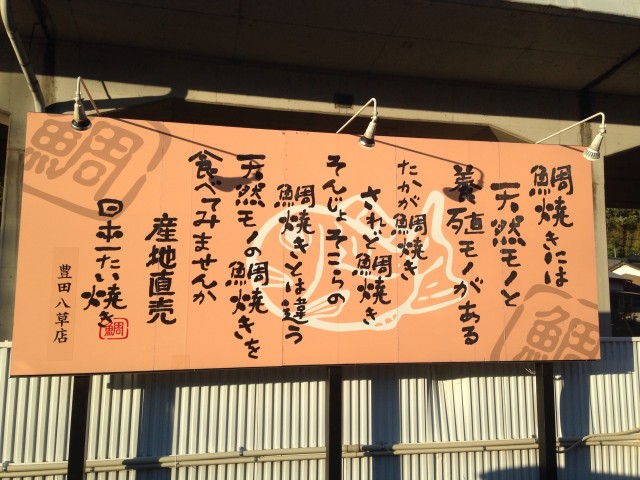 鯛焼きには
天然モノと
養殖モノがある
たかが鯛焼き
されど鯛焼き
そんじょそこらの
鯛焼きとは違う
天然モノの鯛焼きを
食べてみませんか
産地直売
日本一たい焼き
鯛
豊田 八草店
鯛
鯛